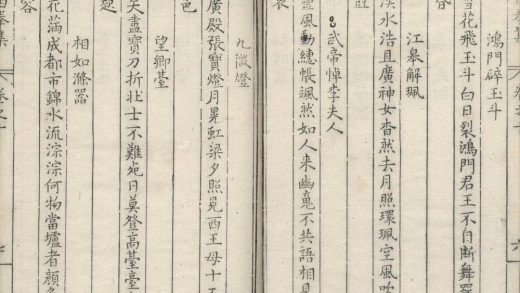 鴻門碎玉斗
雪花飛玉斗白日裂鴻門君王不自斷舞羅
江皋解珮
漢水浩且廣神女杳然去月照環珮空風吹
武帝悼李夫人
靈風動繐帳颯然如人来幽意不共語相見
九微燈
廣殿張寶燈月晃虹梁夕照見西王母十
色
望鄉臺
矢盡寶刀折壮士不難死日莫登高臺臺
相如滌器
花滿成都市錦水流淙淙何物當壚者顏
容
卷之十